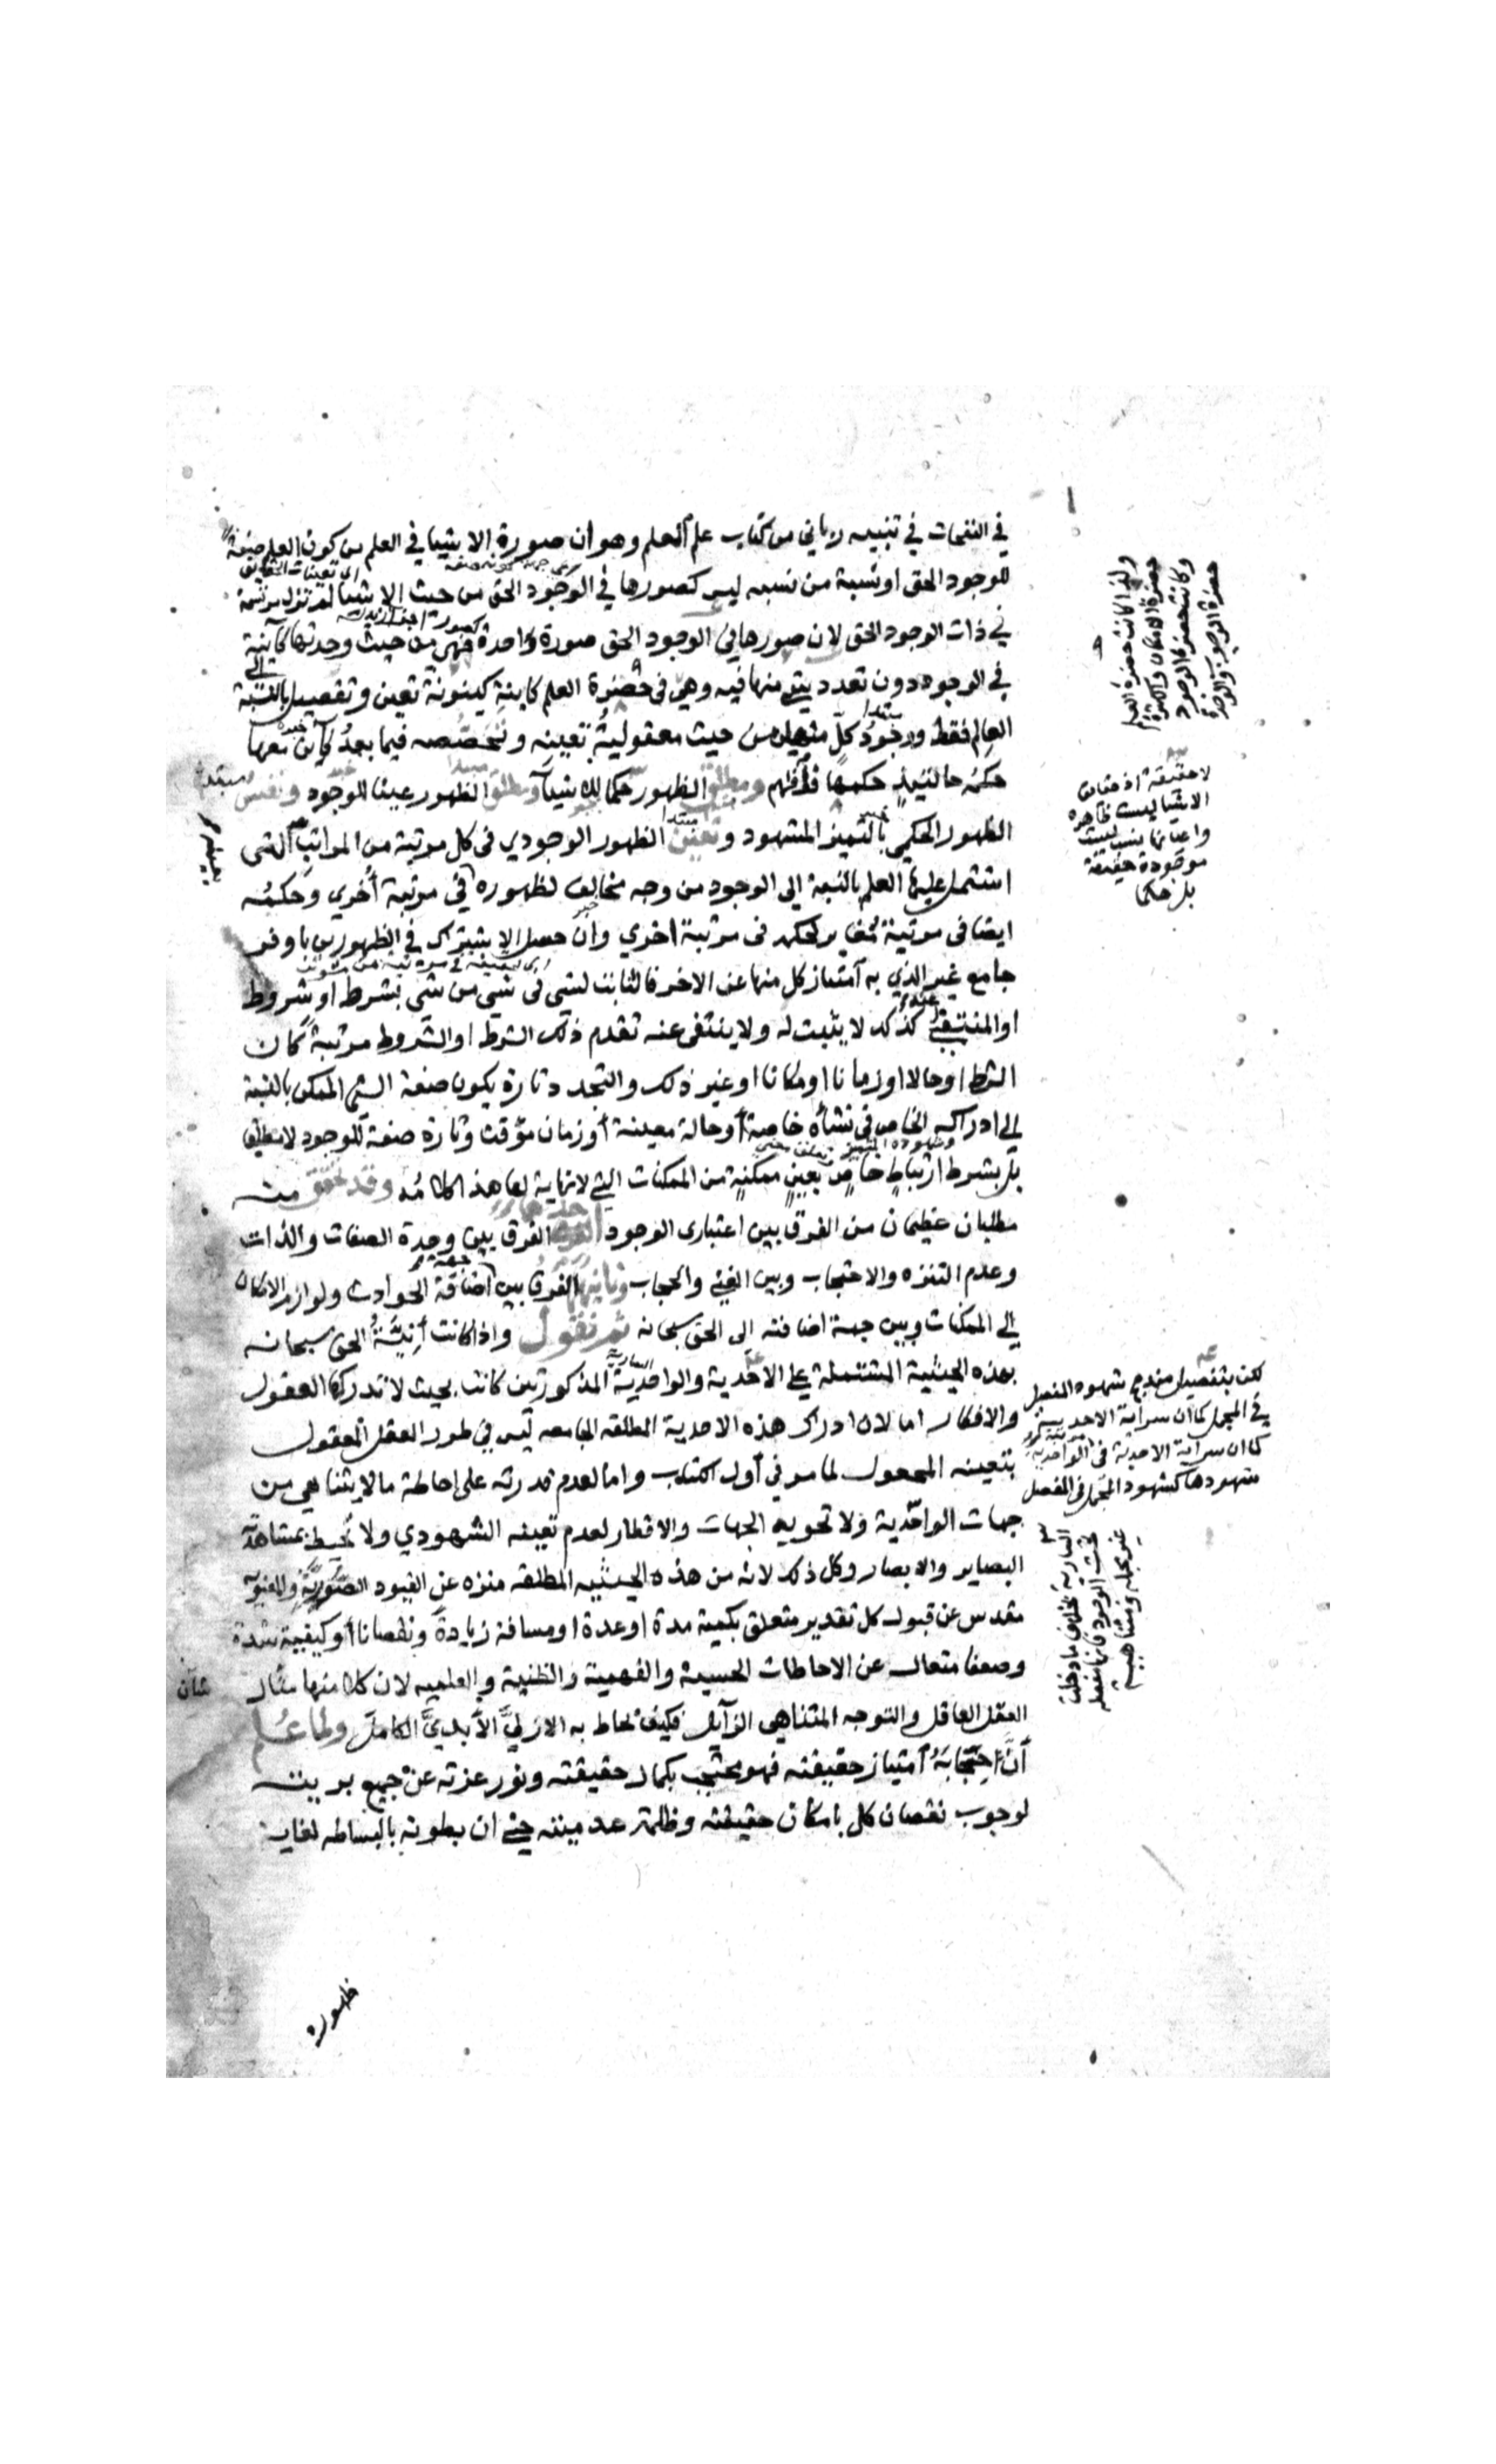 في النفحات في تنبيه رباني من كتاب علم العلم وهو ان صورة الاشيا في العلم من كون العلم صفة
للوجود الحق او نسبة من نسبه ليس كصورها في الوجود الحق من حيث الاشيا لم تزل مرتسمة
في ذات الوجود الحق لان صورها في الوجود الحق صورة واحدة فهي من حيث وحدتها كاينة
في الوجود دون تعدد يتميز منها فيه وهي في حضرة العلم كاينة كينونة تعين وتفصيل بالنسبة الى
العالم فقط ووجود كل منها من حيث معقولية تعينه وتخصصه فيما بعد كاين معها
حكمه حالتئذ حكمها فافهم ومطلق الظهور حكما للاشيا ومطلق الظهور عينا للوجود ونفس
الظهور الحكمي بالتميز المشهود وتعين الظهور الوجودي في كل مرتبة من المراتب التي
اشتمل عليها العلم بالنسبة الى الوجود من وجه مخالف لظهوره في مرتبة أخري وحكمه
ايضا في مرتبة مغاير لحكمه في مرتبة اخري وان حصل الاشتراك في الظهورين باوفر
جامع غير الذي به امتياز كل منها عن الاخر فالثابت لشي في شي من شي بشرط او شروط
او المنتفي كذلك لا يثبت له ولا ينتفى عنه تقدم ذلك الشرط او الشروط مرتبة كان
الشرط او حالا او زمانا او مكانا او غير ذلك والتجدد تارة يكون صفة الشي الممكن بالنسبة
الى ادراكه الخاص في نشأة خاصة أو حالة معينة أو زمان موقت وتارة صفة للوجود لا مطلقا
بل بشرط ارتباط خاص بعين ممكنة من الممكنات التي لا نهاية لها هذا كلامه وقد تحقق منه
مطلبان عظيمان من الفرق بين اعتبارى الوجود احدهما الفرق بين وحدة الصفات والذات
وعدم التنزه والاحتجاب وبين الغنى والحجاب وثانيهما الفرق بين جهة اضافة الحوادث ولوازم الامكان
الى الممكنات وبين جهة اضافته الى الحق سبحانه ثم نقول واذا كانت أنيّة الحق سبحانه
بهذه الحيثية المشتملة على الاحدية والواحدية المذكورتين كانت بحيث لا تدركها العقول
والافكار اما لان ادراك هذه الاحدية المطلقه الجامعه ليس في طور العقل المعقول
بتعينه المجعول لما مر في أول الكتاب واما لعدم قدرته على احاطة ما لا يتناهي من
جهات الواحدية ولا تحويه الجهات والاقطار لعدم تعينه الشهودي ولا تحيط بمشاهدته
البصاير والابصار وكل ذلك لانه من هذه الحيثيه المطلقه منزه عن القيود الصورية والمعنوية
مقدس عن قبول كل تقدير متعلق بكمية مدة او عدة او مسافة زيادة ونقصانا أو كيفيته شدة
وضعفا متعال عن الاحاطات الحسيه والفهمية والظنية والعلميه لان كلا منها
العقل العاقل والتوجه المتناهي الزايل فكيف يحاط به الازليّ الأبديّ الكامل ولما علم
أنّ احتجابَهُ امتياز حقيقته فهو محتجب بكمال حقيقته ونور عزته عن جميع بريته
لوجوب نقصان كل بامكان حقيقته وظلمة عدميته حتى ان بطونه بالبساطه لغاية
ظهوره
ولذا كانت حضرة العلم
حضرة الامكان والكثرة
وكانت حضرة الوجود
حضرة الوجوب والوحدة
لا حقيقة اذ حقايق
الاشيا ليست ظاهره
واعيانها ليست
موجودة حقيقة
بل حكما
لكن بتفصيل مندمج شهود المفصل
في المجمل كما ان سراية الاحدية
كما ان سراية الاحدية في الواحدية
شهودها كشهود المجمل في المفصل
السارية بخلاف ما دخلت
تحت الوجود فانها مفصله
غير مجملة ومتناهية
شان